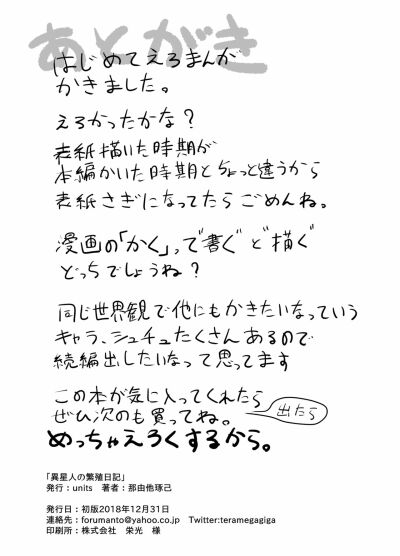 あとがき
はじめてえろまんが
かきました。
えろかったかな?
表紙描いた時期が
本編かいた時期とちょっと違うから
表紙さぎになってたらごめんね。
漫画の「かく」って"書く"と"描く"
どっちでしょうね?
同じ世界観で他にもかきたいなっていう
キャラ、シュチュたくさんあるので
続編出したいなって思ってます
この本が気に入ってくれたら
ぜひ次のも買ってね。
出たら
めっちゃえろくするから。
「異星人の繁殖日記」
発行:units 著者:那由他琢己
発行日:初版2018年12月31日
連絡先:forumanto@yahoo.co.jp Twitter:teramegagiga
印刷所:株式会社 栄光 様